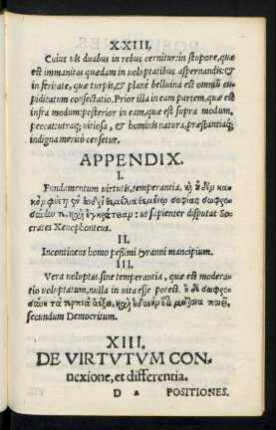 XXIII.
Cuius vis duabus in rebus cernitur: in stupore, quæ
est immanitas quædam in voluptatibus aspernandis: &
in feritate, quæ turpis, & planè belluina est omniũ cu
piditatum consectatio. Prior illa in eam partem, quæ est
infra modum: posterior in eam, quæ est supra modum,
peccat: utraq; vitiosa, & hominis natura, præstantiaq;
indigna meritò censetur.
APPENDIX.
I.
Fundamentum virtutis, temperantia.
ut sapienter disputat So
crates Xenophonteus.
II.
Incontinens homo pessimi tyranni mancipium.
III.
Vera voluptas sine temperantia, quæ est modera
tio voluptatum, nulla in vita esse potest.
secundum Democritum.
XIII.
DE VIRTVTVM CON,
nexione, et differentia.
D 2 POSITIONES.